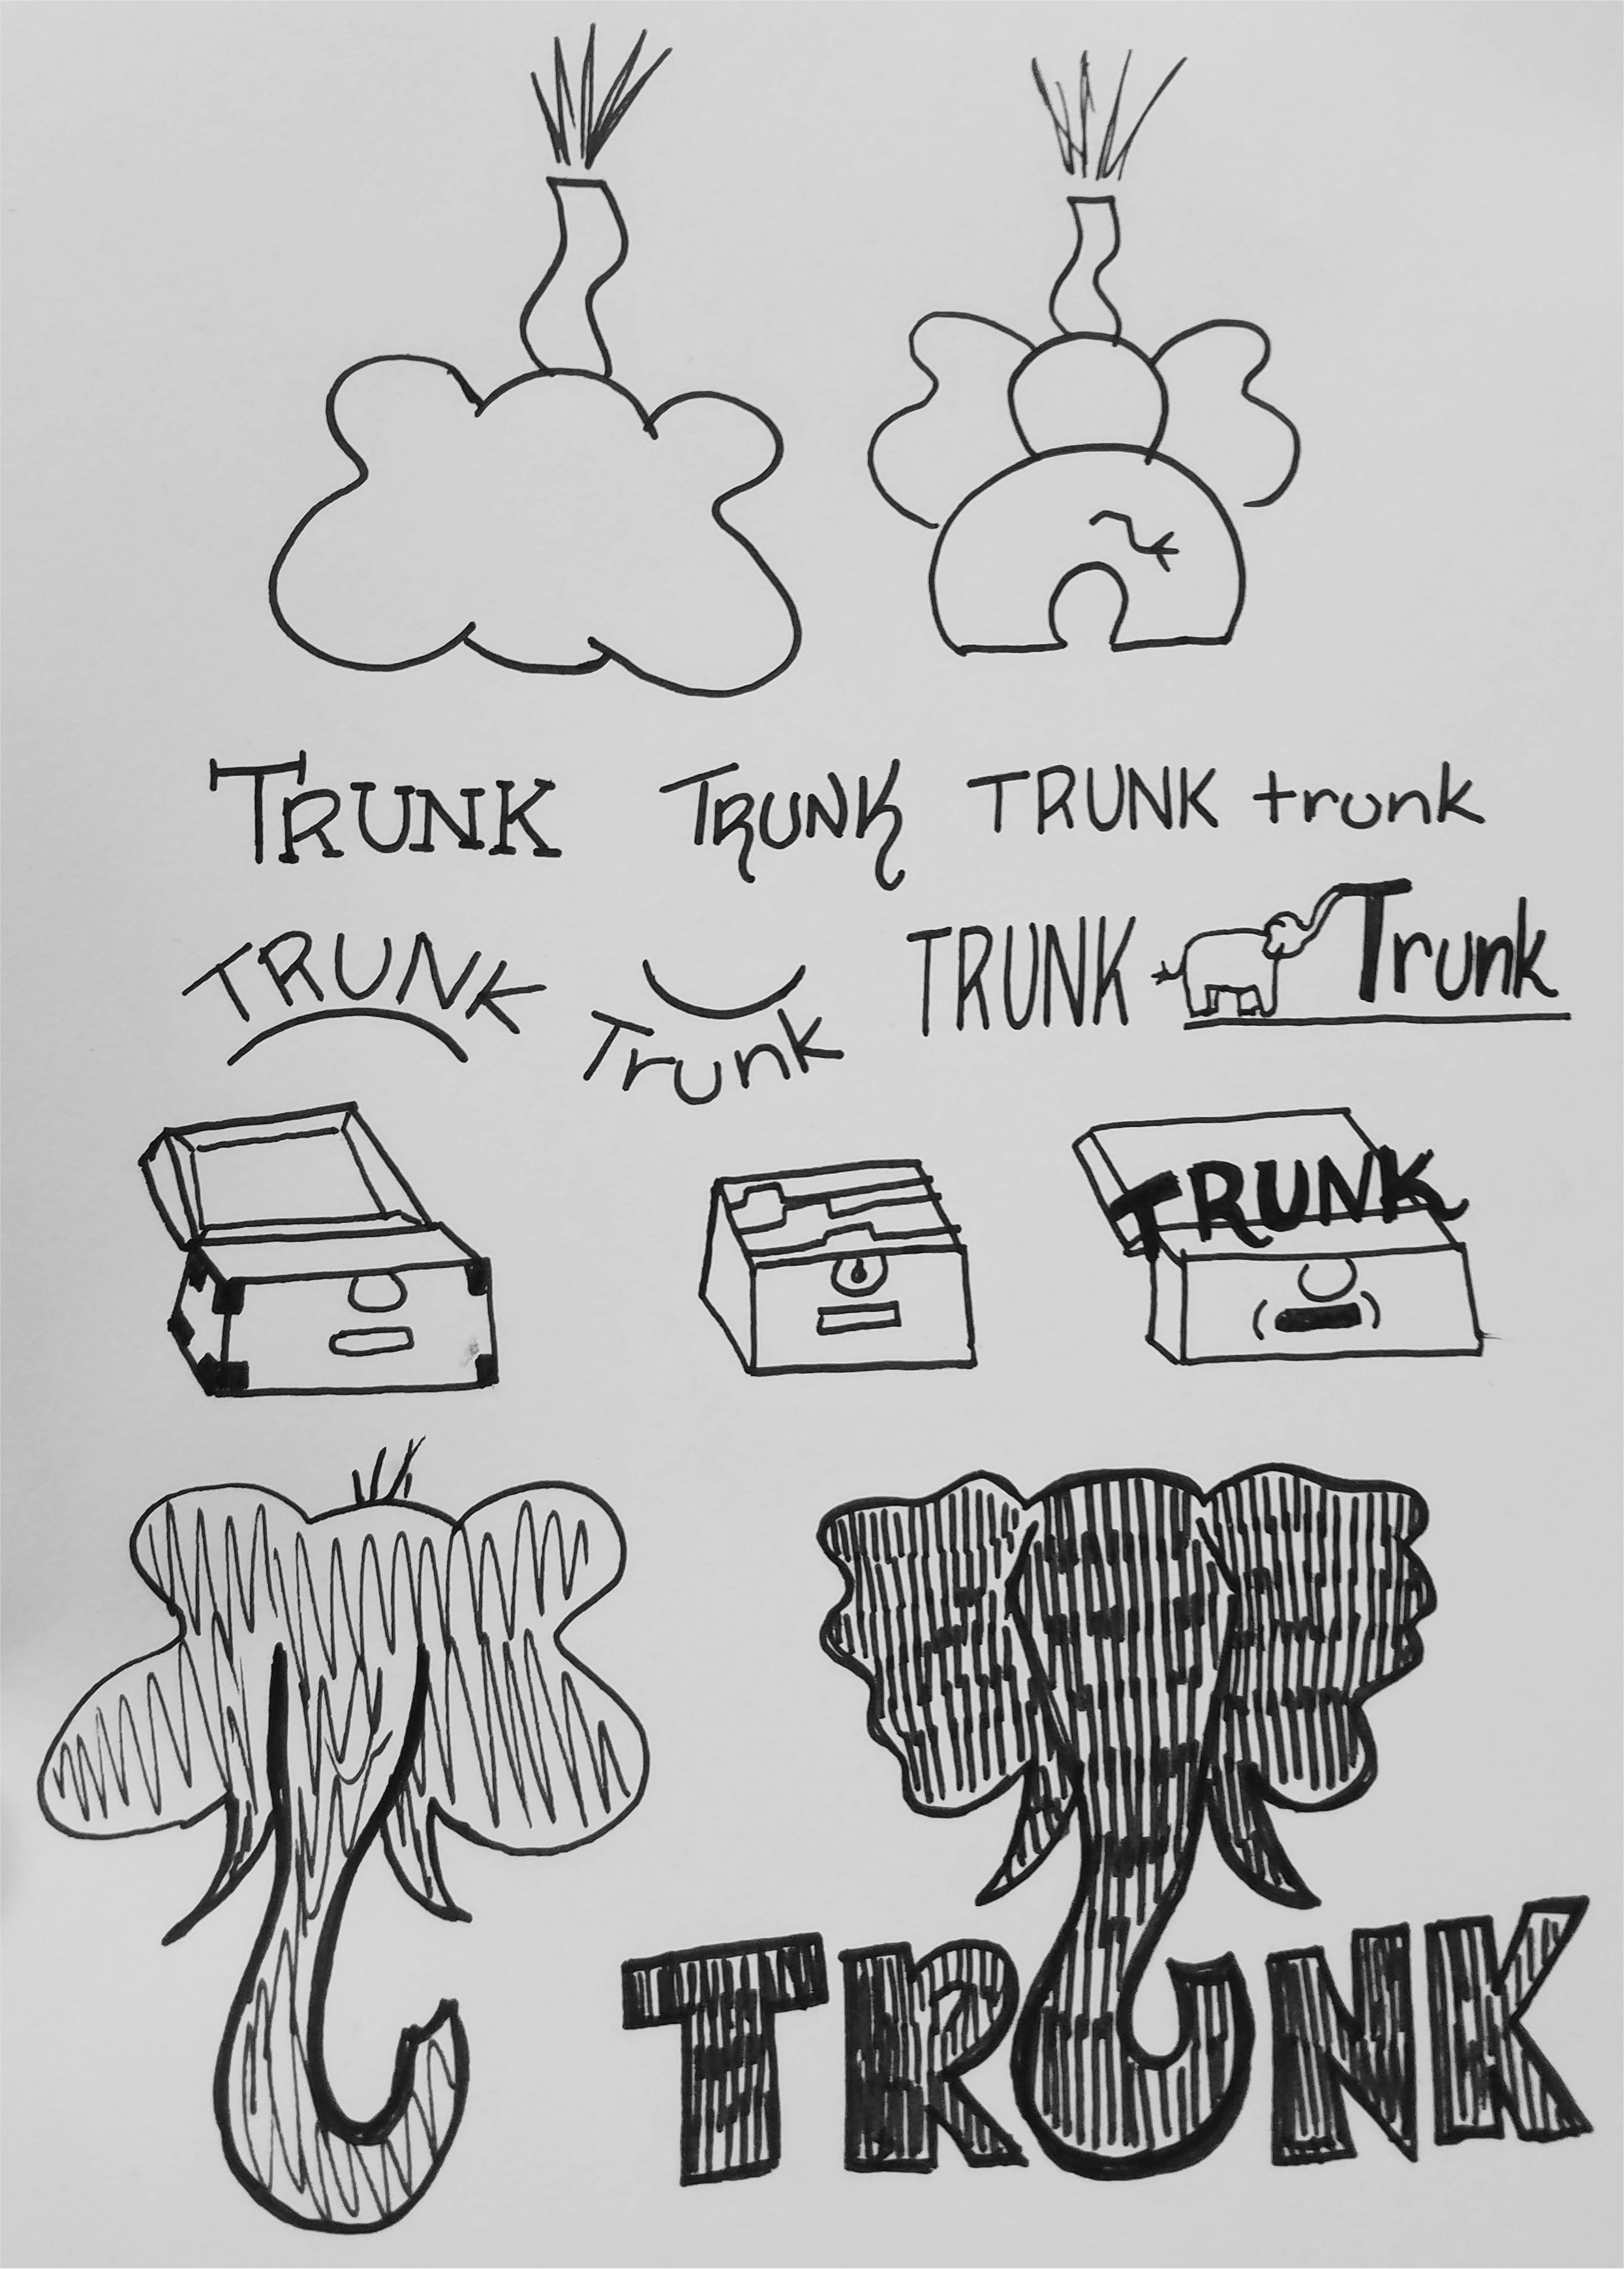 TRUNK TRUNK TRUNK trunk
TRUNK Trunk TRUNK Trunk
TRUNK
TRUNK